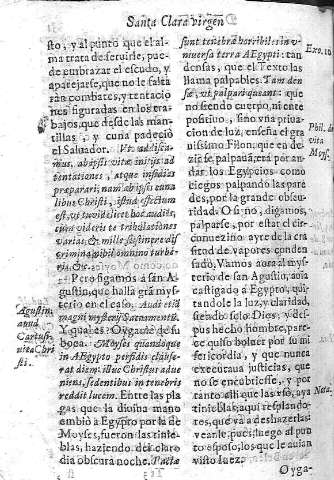 Santa Clara virgen
sto, y al punto que el al-
ma trata de seruirle, pue-
de embrazar el escudo, y
aparejarse, que no le falta
ràn combates, y tentacio
nes figuradas en los tra-
bajos, que desde las man-
tillas, y cuna padeciò
el Saluador.
mus, ab ipsis vitæ initijs ad
tentationes, atque insidias
præparari, nam ab ipsis cuna
libus Christi, istud effectum
est, vt
videris te tribulationes
varias, &
Pero sigamos à san A-
gustin, que halla gran mys-
terio en el caso. Audi etiã
magni mysterij Sacramentũ.
Y qual es? Oygase de su
boca. Moyses quandoque
in AEgypto perfidis clause-
rat diem: illuc Christus adue
niens, sedentibus in tenebris
reddit lucem. Entre las pla
gas que la diuina mano
embiò a Egypto por la de
Moyses, fueron las tinie-
blas, haziendo del claro
dia obscura noche. Factæ
Agustin.
apud
Cartus.
vita Chri
sti.
sunt tenebræ horribiles in v-
niuersa terra AEgypti: tan
densas, que el Texto las
llama palpables. Tam den
sæ, vt palpari queant: que
no siendo cuerpo, ni ente
positiuo, sino vna priua-
cion de luz, enseña el gra
uissimo Filon, que en de-
zir se palpauã, era por an-
dar los Egypcios como
ciegos palpando las pare
des, por la grande obscu-
ridad. O sino, digamos,
palparse, por estar el cir-
cunuezino ayre de la cra
situd de vapores conden
sado. Vamos aora al mys-
terio de san Agustin, auia
castigado à Egypto, qui-
tandole la luz, y claridad,
siendo solo Dios, y des-
pues hecho hombre, pare-
ce quiso boluer por su mi
sericordia, y que nunca
executaua justicias, que
no se encubriesse, y por
tanto allì que las vsò, aya
tinieblas; aqui resplando-
res, que và à deshazerlas:
vearle, pues, luego al pun
to esposo, los que le auian
visto luez.
Exo. 10
Phil. de
vita
Moys.
Nota.
Oyga-